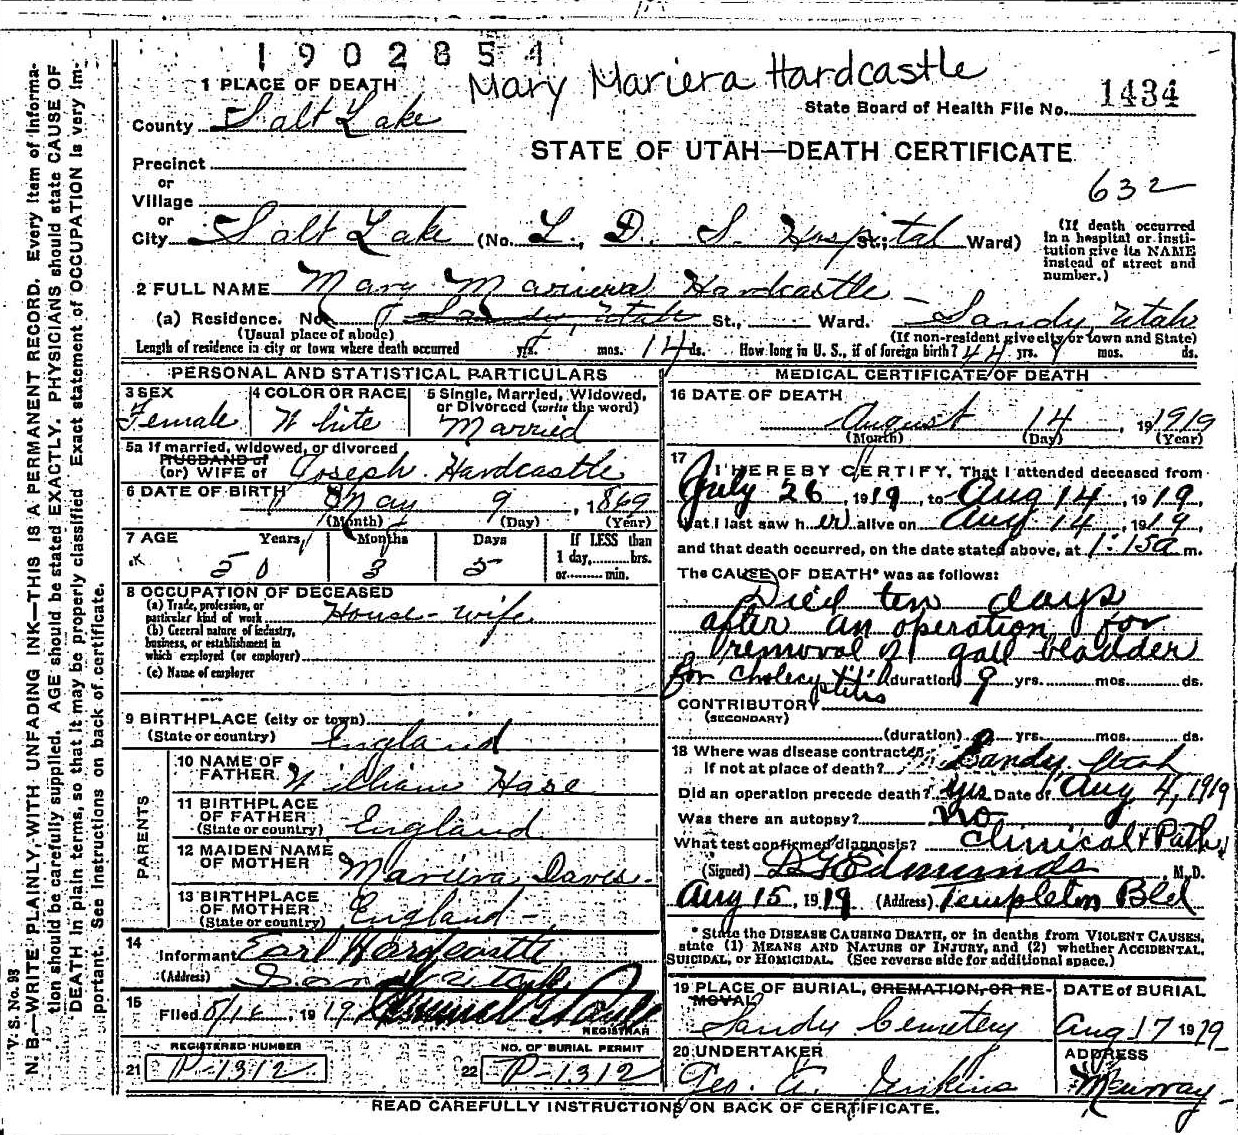 1902854
Mary Mariera Hardcastle
1 PLACE OF DEATH
State Board of Health File No. 1434
County Salt Lake
STATE OF UTAH—DEATH CERTIFICATE
Precinct
632
or
Village
or
City Salt Lake (No. L. D. S. Hospital St.; Ward)
(If death occurred in a hospital or institution give its NAME instead of street and number.)
2 FULL NAME Mary Mariera Hardcastle
(a) Residence. No. Sandy, Utah St., Ward. Sandy, Utah
(Usual place of abode) (If non-resident give city or town and State)
Length of residence in city or town where death occurred yrs. mos. 14 ds. How long in U. S., if of foreign birth? 44 yrs. mos. ds.
PERSONAL AND STATISTICAL PARTICULARS
3 SEX Female
4 COLOR OR RACE White
5 Single, Married, Widowed, or Divorced (write the word) Married
5a If married, widowed, or divorced
HUSBAND of
(or) WIFE of Joseph Hardcastle
6 DATE OF BIRTH May 9, 1869
(Month) (Day) (Year)
7 AGE Years Months Days If LESS than
1 day, hrs.
50 3 5 or min.
8 OCCUPATION OF DECEASED
(a) Trade, profession, or particular kind of work House-wife
(b) General nature of industry, business, or establishment in which employed (or employer)
(c) Name of employer
9 BIRTHPLACE (city or town)
(State or country) England
PARENTS
10 NAME OF FATHER William
11 BIRTHPLACE OF FATHER (State or country) England
12 MAIDEN NAME OF MOTHER Mariera Davis
13 BIRTHPLACE OF MOTHER (State or country) England
14 Informant Earl Hardcastle
(Address) Sandy Utah
15 Filed 1919
REGISTRAR
REGISTERED NUMBER
21 P-1312
NO. OF BURIAL PERMIT
22 P-1312
MEDICAL CERTIFICATE OF DEATH
16 DATE OF DEATH
August 14, 1919
(Month) (Day) (Year)
17 I HEREBY CERTIFY, That I attended deceased from
July 26, 1919, to Aug 14, 1919,
that I last saw her alive on Aug 14, 1919,
and that death occurred, on the date stated above, at 1:15a m.
The CAUSE OF DEATH* was as follows:
Died ten days
after an operation for
removal of gall bladder
for cholecystitis (duration) 9 yrs. mos. ds.
CONTRIBUTORY
(SECONDARY)
(duration) yrs. mos. ds.
18 Where was disease contracted
If not at place of death? Sandy Utah
Did an operation precede death? yes Date of Aug 4, 1919
Was there an autopsy? no
What test confirmed diagnosis? Clinical + Path.
(Signed) D G Edmunds, M. D.
Aug 15, 1919 (Address) Templeton Bld
* State the DISEASE CAUSING DEATH, or in deaths from VIOLENT CAUSES,
state (1) MEANS AND NATURE OF INJURY, and (2) whether ACCIDENTAL,
SUICIDAL, or HOMICIDAL. (See reverse side for additional space.)
19 PLACE OF BURIAL, CREMATION, OR REMOVAL
Sandy Cemetery
DATE of BURIAL
Aug 17 1919
20 UNDERTAKER
Geo. A. Jenkins
ADDRESS
Murray
READ CAREFULLY INSTRUCTIONS ON BACK OF CERTIFICATE.
V. S. No. 98
N. B.—WRITE PLAINLY, WITH UNFADING INK—THIS IS A PERMANENT RECORD. Every item of informa-
tion should be carefully supplied. AGE should be stated EXACTLY. PHYSICIANS should state CAUSE OF
DEATH in plain terms, so that it may be properly classified. Exact statement of OCCUPATION is very im-
portant. See Instructions on back of certificate.